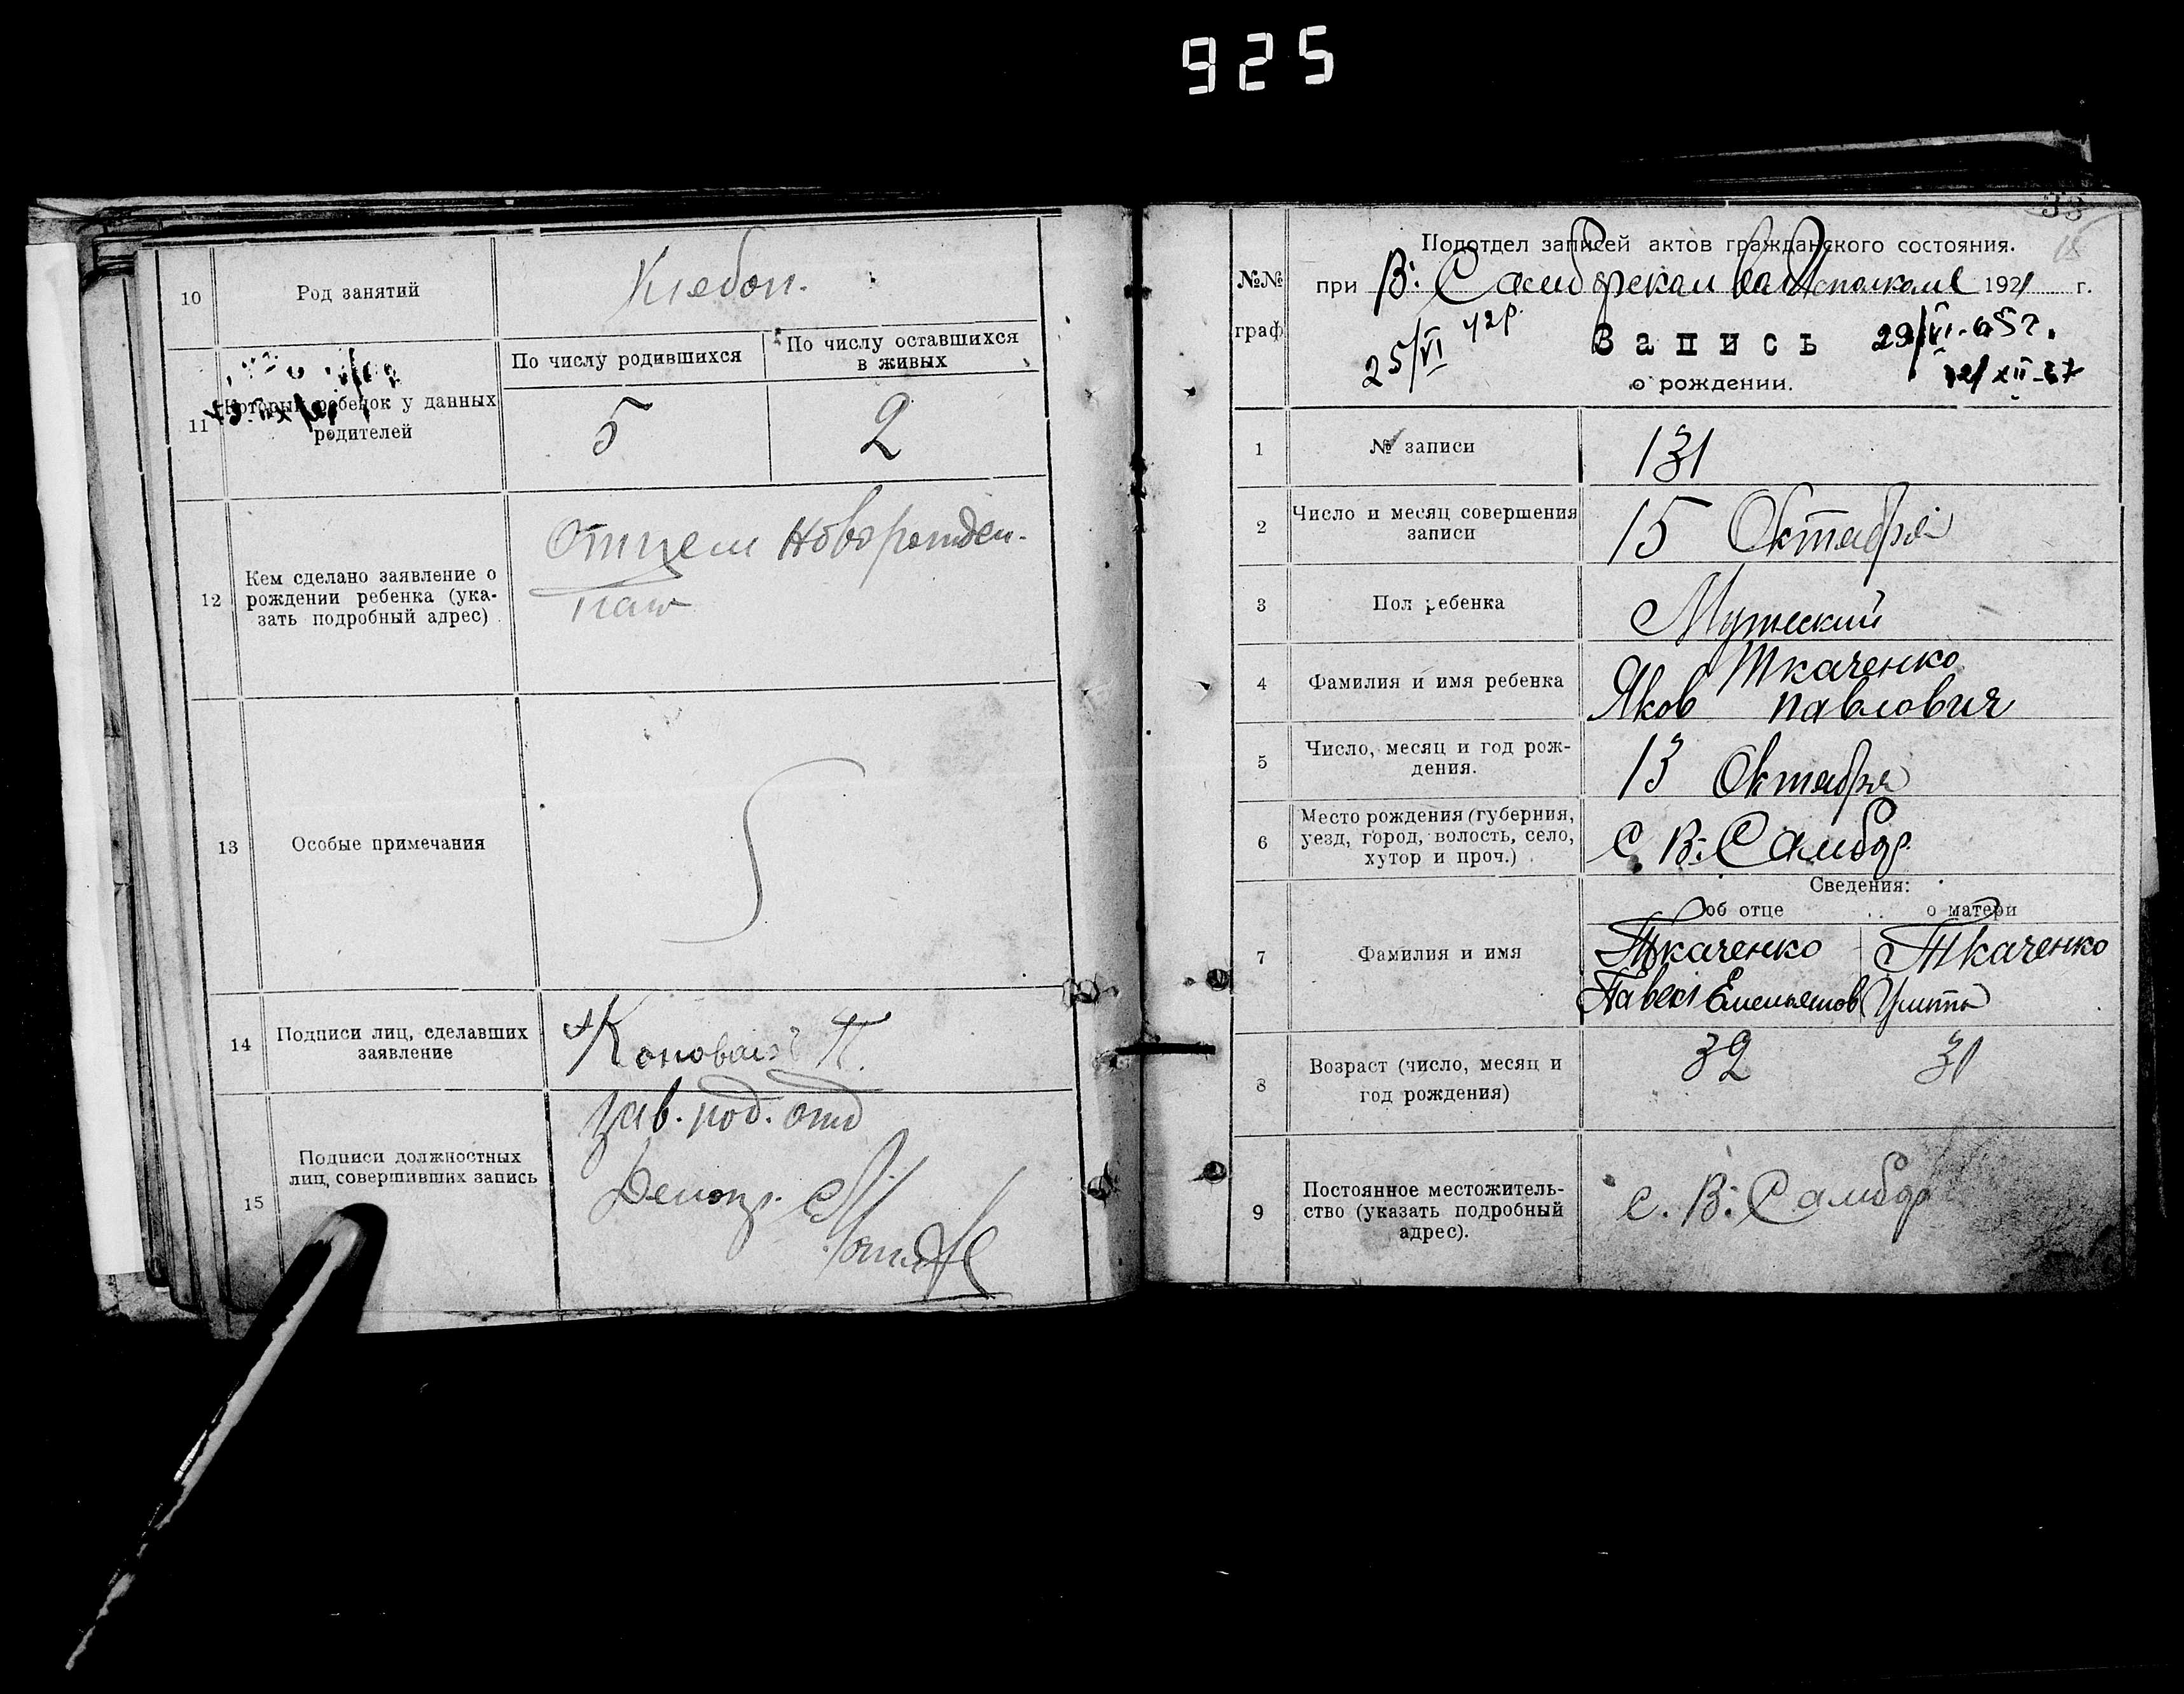 925
10
Род занятий
Хлебоп.
11
Который ребенок у данных
родителей
По числу родившихся
По числу оставшихся
в живых
5
2
12
Кем сделано заявление о
рождении ребенка (ука-
зать подробный адрес)
Отцем новорожден-
13
Особые примечания
14
Подписи лиц, сделавших
заявление
Коновал П.
15
Подписи должностных
лиц, совершивших запись
Зав. под. отд
38
Подотдел записей актов гражданского состояния.
№№
граф
при В: Самбрском Волисполкоме 1921 г.
25/VI 42р.
Запись
29/VI-65г.
о рождении.
12/XII-67
1
№ записи
131
2
Число и месяц совершения
записи
15 Октября
3
Пол ребенка
Мужеский
4
Фамилия и имя ребенка
Ткаченко
Яков Павлович
5
Число, месяц и год рож-
дения.
13 Октября
6
Место рождения (губерния,
уезд, город, волость, село,
хутор и проч.)
С. В: Самбор.
Сведения:
об отце
о матери
7
Фамилия и имя
Ткаченко
Павел Емельянов
Ткаченко
8
Возраст (число, месяц и
год рождения)
32
31
9
Постоянное местожитель-
ство (указать подробный
адрес).
с. В: Самбор